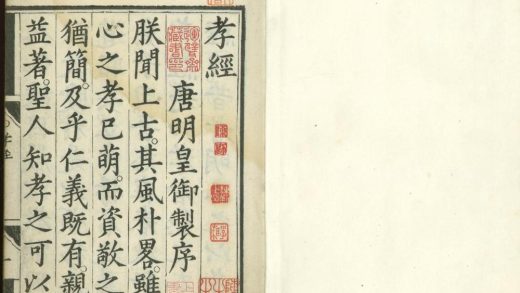 孝經
唐明皇御製序
朕聞上古。其風朴畧。雖
心之孝已萌。而資敬之
猶簡。及乎仁義既有。親
益著。聖人知孝之可以